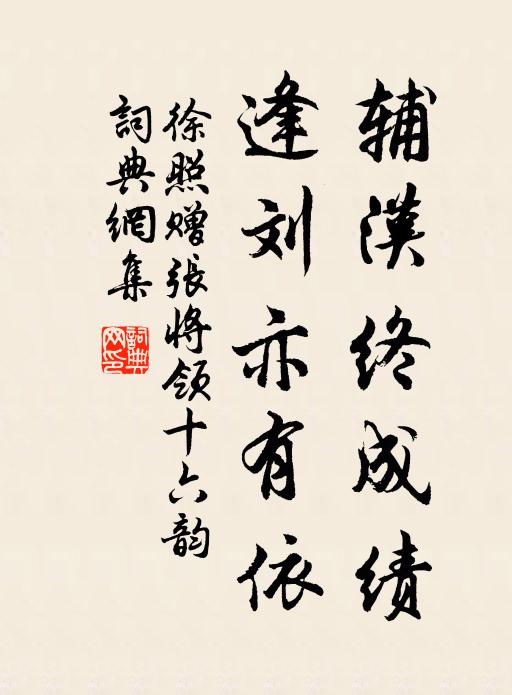 辅漢终成绩
逢刘亦有依
徐照赠張将领十六韵
詞典網集
詞典网印